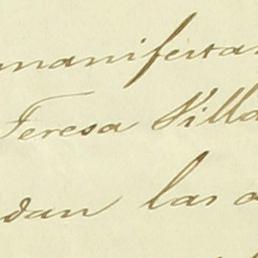 manifestar
Teresa Villa
dan las a